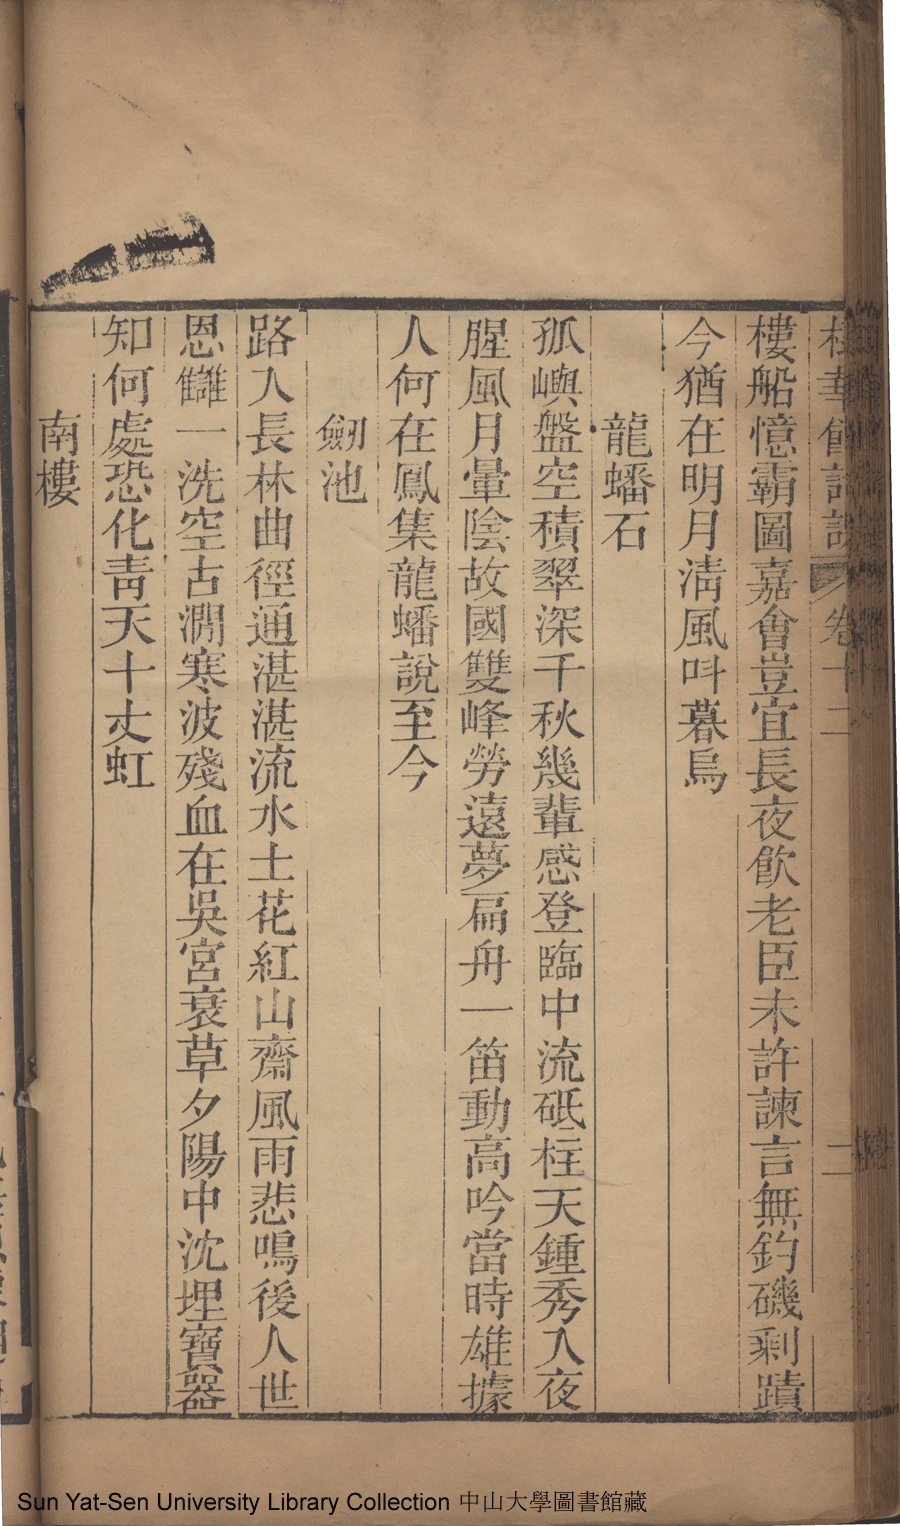 樓船憶霸圖嘉會豈宜長夜飮老臣未許諫言無釣磯剩蹟
今猶在明月淸風呌暮烏
龍蟠石
孤嶼盤空積翠深千秋幾輩感登臨中流砥柱天鍾秀入夜
腥風月暈陰故國雙峰勞遠夢扁舟一笛動高吟當時雄據
人何在鳳集龍蟠說至今
劒池
路入長林曲徑通湛湛流水土花紅山齋風雨悲鳴後人世
恩讎一洗空古澗寒波殘血在吳宮衰草夕陽中沈埋寶器
知何處恐化靑天十丈虹
南樓
Sun Yat-Sen University Library Collection 中山大學圖書館藏